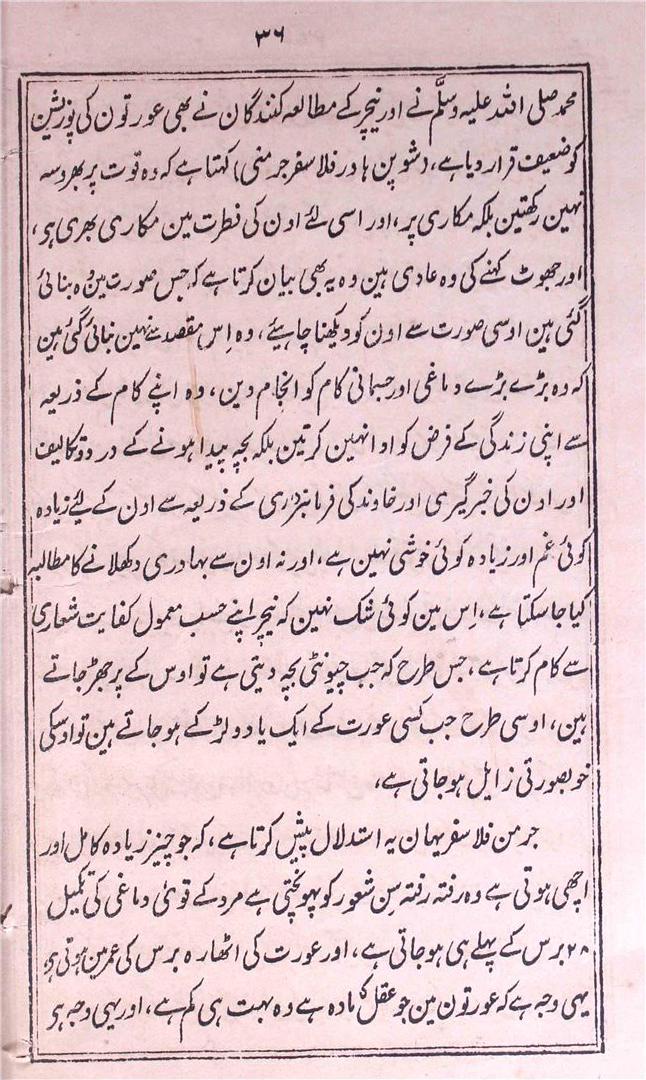 ۳۶
محمد صلی اللہ علیہ وسلّم نے اور نیچر کے مطالعہ کنندگان نے بھی عورتون کی پوزیشن
کو ضعیف قرار دیا ہے، (شوپن ہادر فلاسفر جرمنی) کہتا ہے کہ وہ قوت پر بھروسہ
نہین رکھتین بلکہ مکاری پر، اور اسی لئے اون کی فطرت مین مکاری بھری ہو،
اور جھوٹ کہنے کی وہ عادی ہین وہ یہ بھی بیان کرتا ہے کہ جس صورت مین وہ بنائی
گئی ہین اوسی صورت سے اون کو دیکھنا چاہیئے، وہ اِس مقصد سے نہین بنائی گئی ہین
کہ وہ بڑے بڑے دماغی اور جسمانی کام کو انجام دین، وہ اپنے کام کے ذریعہ
سے اپنی زندگی کے فرض کو ادا نہین کرتین بلکہ بچہ پیدا ہونے کے درد و تکالیف
اور اون کی خبر گیری اور خاوند کی فرمانبرداری کے ذریعہ سے اون کے لئے زیادہ
کوئی غم اور زیادہ کوئی خوشی نہین ہے، اور نہ اون سے بہادری دکھلانے کا مطالبہ
کیا جا سکتا ہے، اِس مین کوئی شک نہین کہ نیچر اپنے حسب معمول کفایت شعاری
سے کام کرتا ہے، جس طرح کہ جب چیونٹی بچہ دیتی ہے تو اوس کے پر جھڑ جاتے
ہین، اوسی طرح جب کسی عورت کے ایک یا دو لڑکے ہو جاتے ہین تو اوسکی
خوبصورتی زایل ہو جاتی ہے،
جرمن فلاسفر یہان یہ استدلال پیش کرتا ہے، کہ جو چیز زیادہ کامل اور
اچھی ہوتی ہے وہ رفتہ رفتہ سِن شعور کو پہونچتی ہے مرد کے قویٰ دماغی کی تکمیل
۲۸ برس کے پہلے ہی ہو جاتی ہے، اور عورت کی اٹھارہ برس کی عمر مین ہوتی ہو
یہی وجہ ہے کہ عورتون مین جو عقل کا مادہ ہے وہ بہت ہی کم ہے، اور یہی وجہ ہو